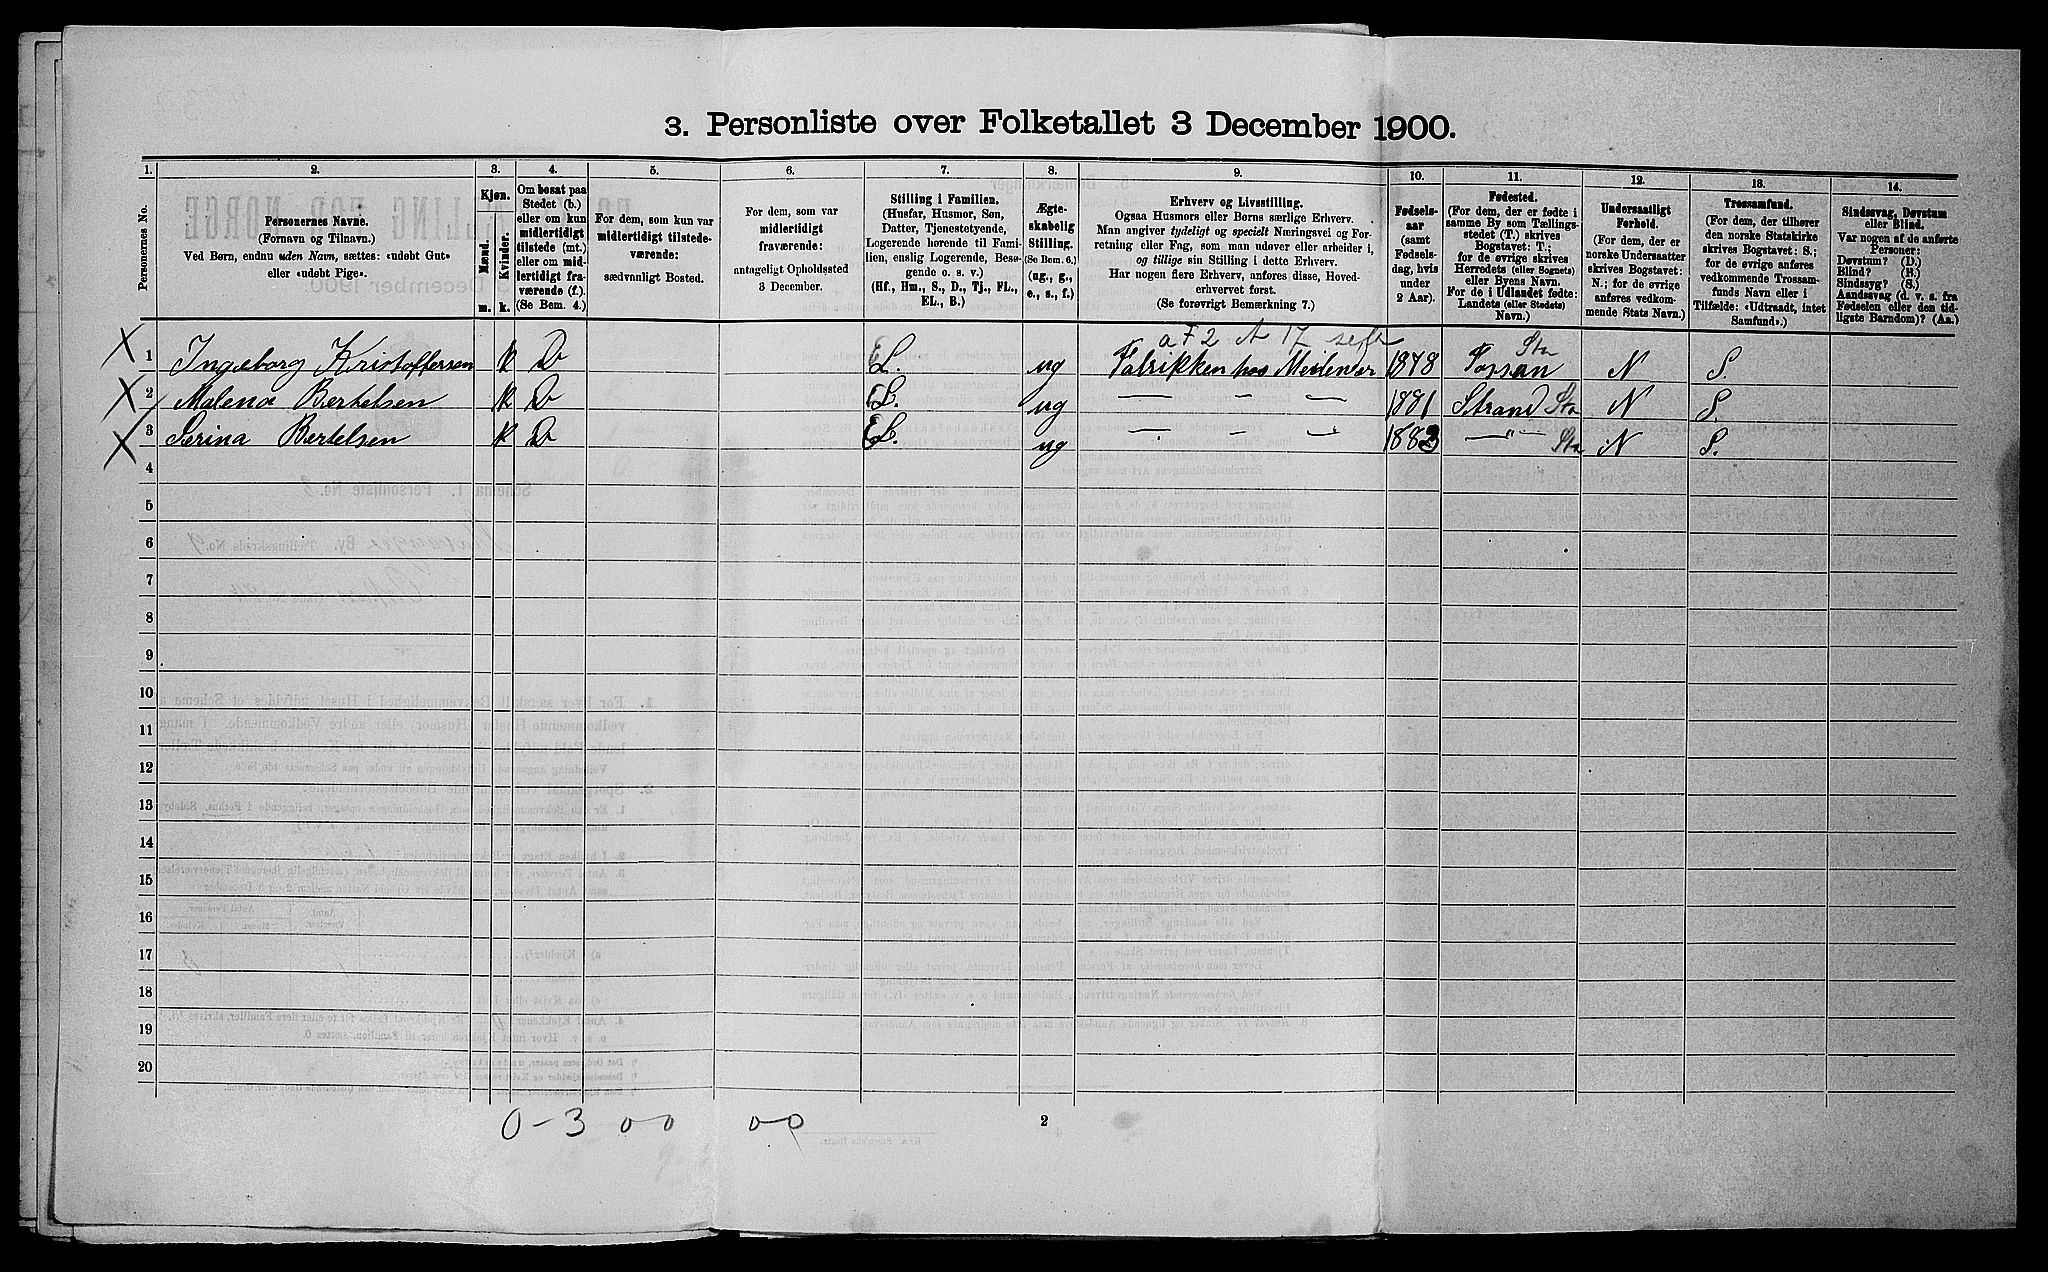 3. Personliste over Folketallet 3 December 1900.
1. 2. 3. 4. 5. 6. 7. 8. 9. 10. 11. 12. 13. 14.
Personernes No.
Personernes Navne.
(Fornavn og Tilnavn.)
Ved Børn, endnu uden Navn, sættes: «udøbt Gut»
eller «udøbt Pige».
Kjøn.
Mænd.
Kvinder.
m. k.
Om bosat paa
Stedet (b.)
eller om kun
midlertidigt
tilstede (mt.)
eller om mid-
lertidigt fra-
værende (f.).
(Se Bem. 4.)
For dem, som kun var
midlertidigt tilstede-
værende:
sædvanligt Bosted.
For dem, som var
midlertidigt
fraværende:
antageligt Opholdssted
3 December.
Stilling i Familien.
(Husfar, Husmor, Søn,
Datter, Tjenestetyende,
Logerende hørende til Fami-
lien, enslig Logerende, Besø-
gende o. s. v.)
(Hf., Hm., S., D., Tj., FL.,
EL., B.)
Ægte-
skabelig
Stilling.
(Se Bem. 6.)
(ug., g.,
e., s., f.)
Erhverv og Livsstilling.
Ogsaa Husmors eller Børns særlige Erhverv.
Man angiver tydeligt og specielt Næringsvei og For-
retning eller Fag, som man udøver eller arbeider i,
og tillige sin Stilling i dette Erhverv.
Har nogen flere Erhverv, anføres disse, Hoved-
erhvervet først.
(Se forøvrigt Bemærkning 7.)
Fødsels-
aar
(samt
Fødsels-
dag, hvis
under
2 Aar).
Fødested.
(For dem, der er fødte i
samme By som Tællings-
stedet (T.) skrives
Bogstavet: T.;
for de øvrige skrives
Herredets (eller Sognets)
eller Byens Navn.
For de i Udlandet fødte:
Landets (eller Stedets)
Navn.)
Undersaatligt
Forhold.
(For dem, der er
norske Undersaatter
skrives Bogstavet:
N.; for de øvrige
anføres vedkom-
mende Stats Navn.)
Trossamfund.
(For dem, der tilhører
den norske Statskirke
skrives Bogstavet: S.;
for de øvrige anføres
vedkommende Trossam-
funds Navn eller i
Tilfælde: «Udtraadt, intet
Samfund».)
Sindssvag, Døvstum
eller Blind.
Var nogen af de anførte
Personer:
Døvstum? (D.)
Blind? (B.)
Sindssyg? (S.)
Aandssvag (d. v. s. fra
Fødselen eller den tid-
ligste Barndom)? (Aa.)
1 Ingeborg Kristoffersen k b EL. ug 1878 N S
2 Malena Bertelsen k b EL. ug — — — 1881 Strand Sta N S.
3 Serina Bertelsen k b EL. ug — — — 1883 —"— Sta N S.
4
5
6
7
8
9
10
11
12
13
14
15
16
17
18
19
20
0-3 00 00
2